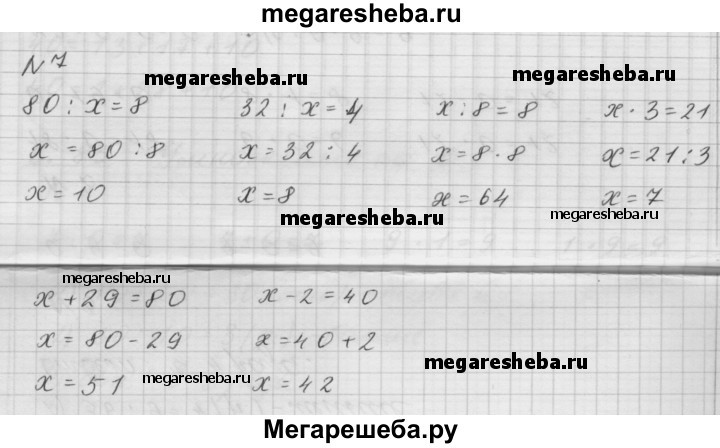 megaresheba.ru
N 7
megaresheba.ru
megaresheba.ru
80 : x = 8 32 : x = 4 x : 8 = 8 x · 3 = 21
x = 80 : 8 x = 32 : 4 x = 8 · 8 x = 21 : 3
x = 10 x = 8 x = 64 x = 7
megaresheba.ru
megaresheba.ru
megaresheba.ru
x + 29 = 80 x - 2 = 40
x = 80 - 29 x = 40 + 2
megaresheba.ru
x = 51 x = 42
megaresheba.ru
Мегарешеба.ру